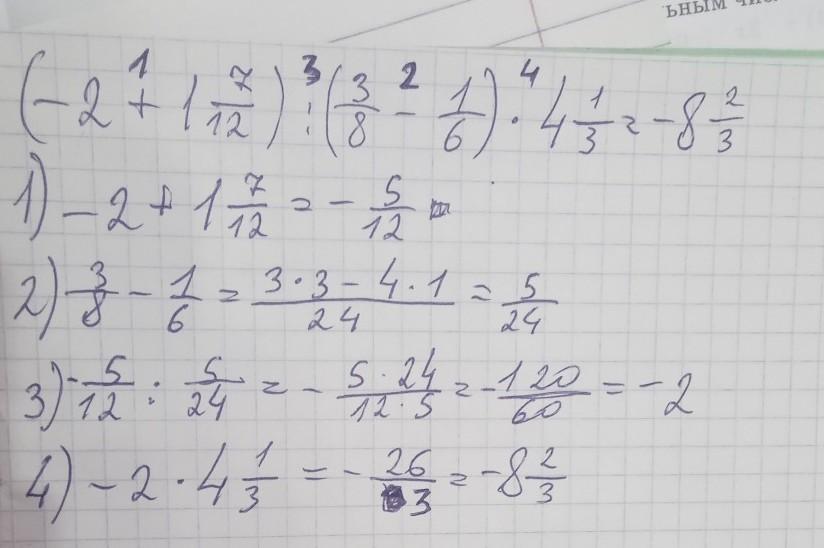 ьным чис
(-2 +¹ 1 7/12) :³ (3/8 -² 1/6) ·⁴ 4 1/3 = -8 2/3
1) -2 + 1 7/12 = - 5/12
2) 3/8 - 1/6 = (3·3 - 4·1)/24 = 5/24
3) -5/12 : 5/24 = - (5·24)/(12·5) = -120/60 = -2
4) -2 · 4 1/3 = - 26/3 = -8 2/3